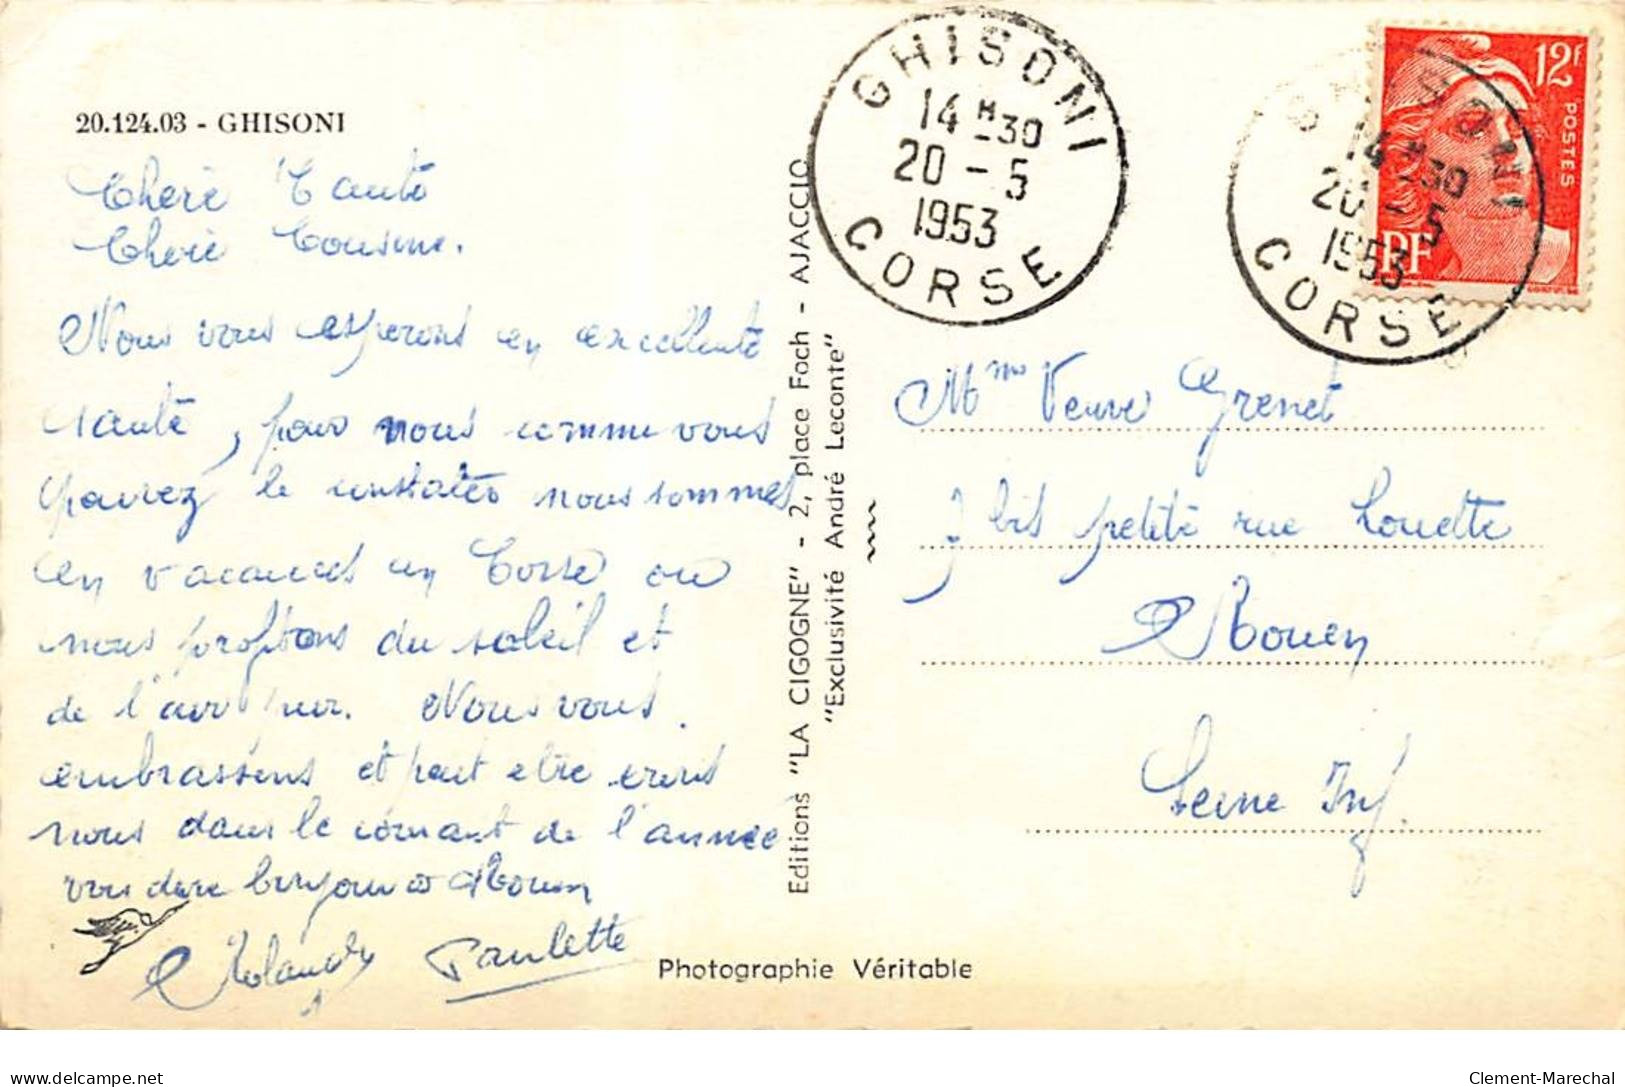 20.124.03 - GHISONI
Chère Tante
Chère Cousine.
Nous vous esperons en excellente
santé, pour nous comme vous
pouvez le constater nous sommes
en vacances en Corse ou
nous profitons du soleil et
de l'air pur. Nous vous
embrassens et peut etre irons
nous dans le courant de l'année
vous dire bonjour à Rouen
Rolande Paulette
Editions "LA CIGOGNE" - 2, place Foch - AJACCIO
"Exclusivité André Leconte"
Photographie Véritable
GHISONI
14 H 30
20 - 5
1953
CORSE
GHISONI
14 H 30
20 - 5
1953
CORSE
12F
POSTES
RF
Mme Veuve Grenet
bis petite rue Louette
Rouen
Seine Inf.
delcampe.net
Clement-Marechal